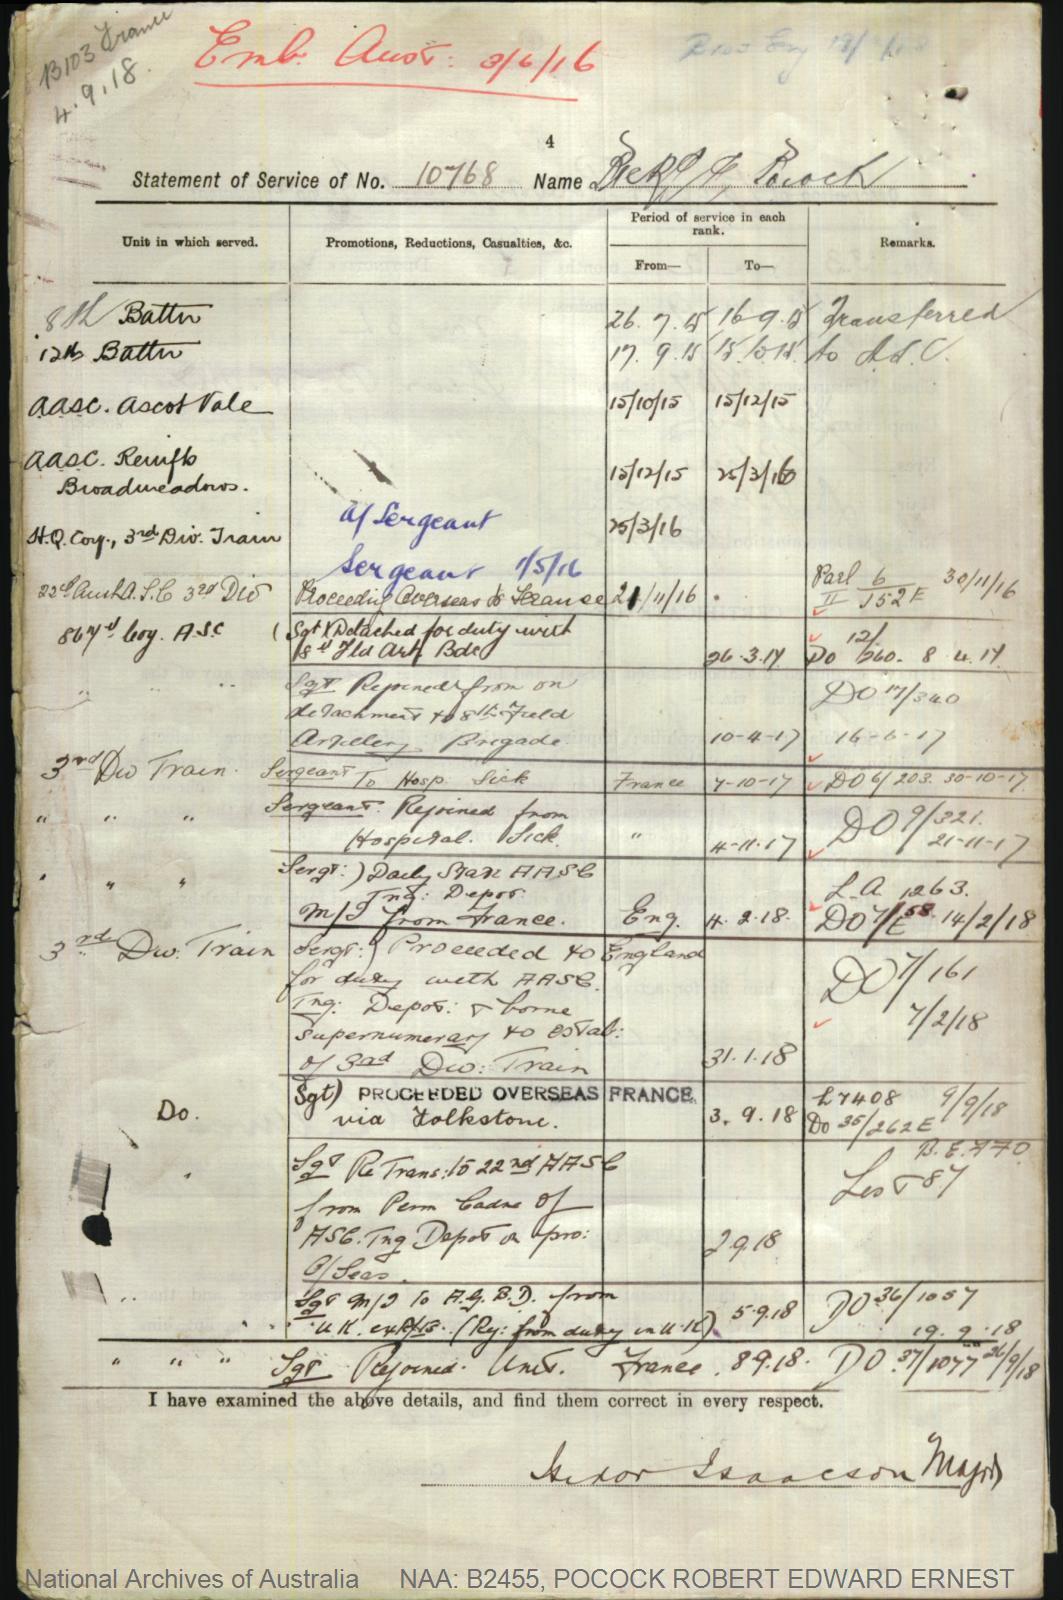 B103 France
4.9.18.
Emb. Aust: 3/6/16
4
Statement of Service of No. 10768 Name Pocock
Unit in which served.
Promotions, Reductions, Casualties, &c.
Period of service in each rank.
From—
To—
Remarks.
8th Battn 26.7.15 16.9.15 Transferred
12th Battn 17.9.15 15.10.15 to A.S.C.
AASC. Ascot Vale 15/10/15 15/12/15
AASC. Reinfts
Broadmeadows. 15/12/15 25/3/16
A/Sergeant
H.Q. Coy., 3rd Div. Train 25/3/16
Sergeant 1/5/16
22nd Aust A.S.C 3rd Div Proceeding Overseas to France 21/11/16 Part II 6/152E 30/11/16
867th Coy. A.S.C (Sgt) Detached for duty with
8th Fld Art Bde 26.3.17 DO 12/260. 8.4.17
" " " Sgt. Rejoined from on
detachment to 8th Field
Artillery Brigade. 10-4-17 DO 17/340
16-6-17
3rd Div Train. Sergeant To Hosp. Sick France 7-10-17 DO 6/203. 30-10-17
" " " Sergeant. Rejoined from
Hospital. Sick. " 4-11-17 DO 9/321.
21-11-17
" " " Sergt:) Daily State AASC
Tng: Depot
M/I from France. Eng. 4.2.18. L.A. 1263.
DO 7/E58. 14/2/18
3rd Div. Train Sergt:) Proceeded to England
for duty with AASC.
Tng: Depot: & borne
supernumerary to estab:
of 3rd Div: Train 31.1.18 DO 7/161
7/2/18
Do. Sgt) PROCEEDED OVERSEAS FRANCE
via Folkstone. 3.9.18 L7408 9/9/18
Do 35/262E
" Sgt Re Trans: to 22nd AASC
from Perm Cadre of
ASC. Tng Depot on pro:
O/Seas. 2.9.18 B.E.A70
List 87
" Sgt M/I to A.G.B.D. from
U.K. (Rj: from duty in U.K) 5.9.18 DO 36/1057
19.9.18
" " " Sgt Rejoined Unit. France. 8.9.18. DO 37/1077 26/9/18
I have examined the above details, and find them correct in every respect.
Isidor Isaacson Major
National Archives of Australia NAA: B2455, POCOCK ROBERT EDWARD ERNEST